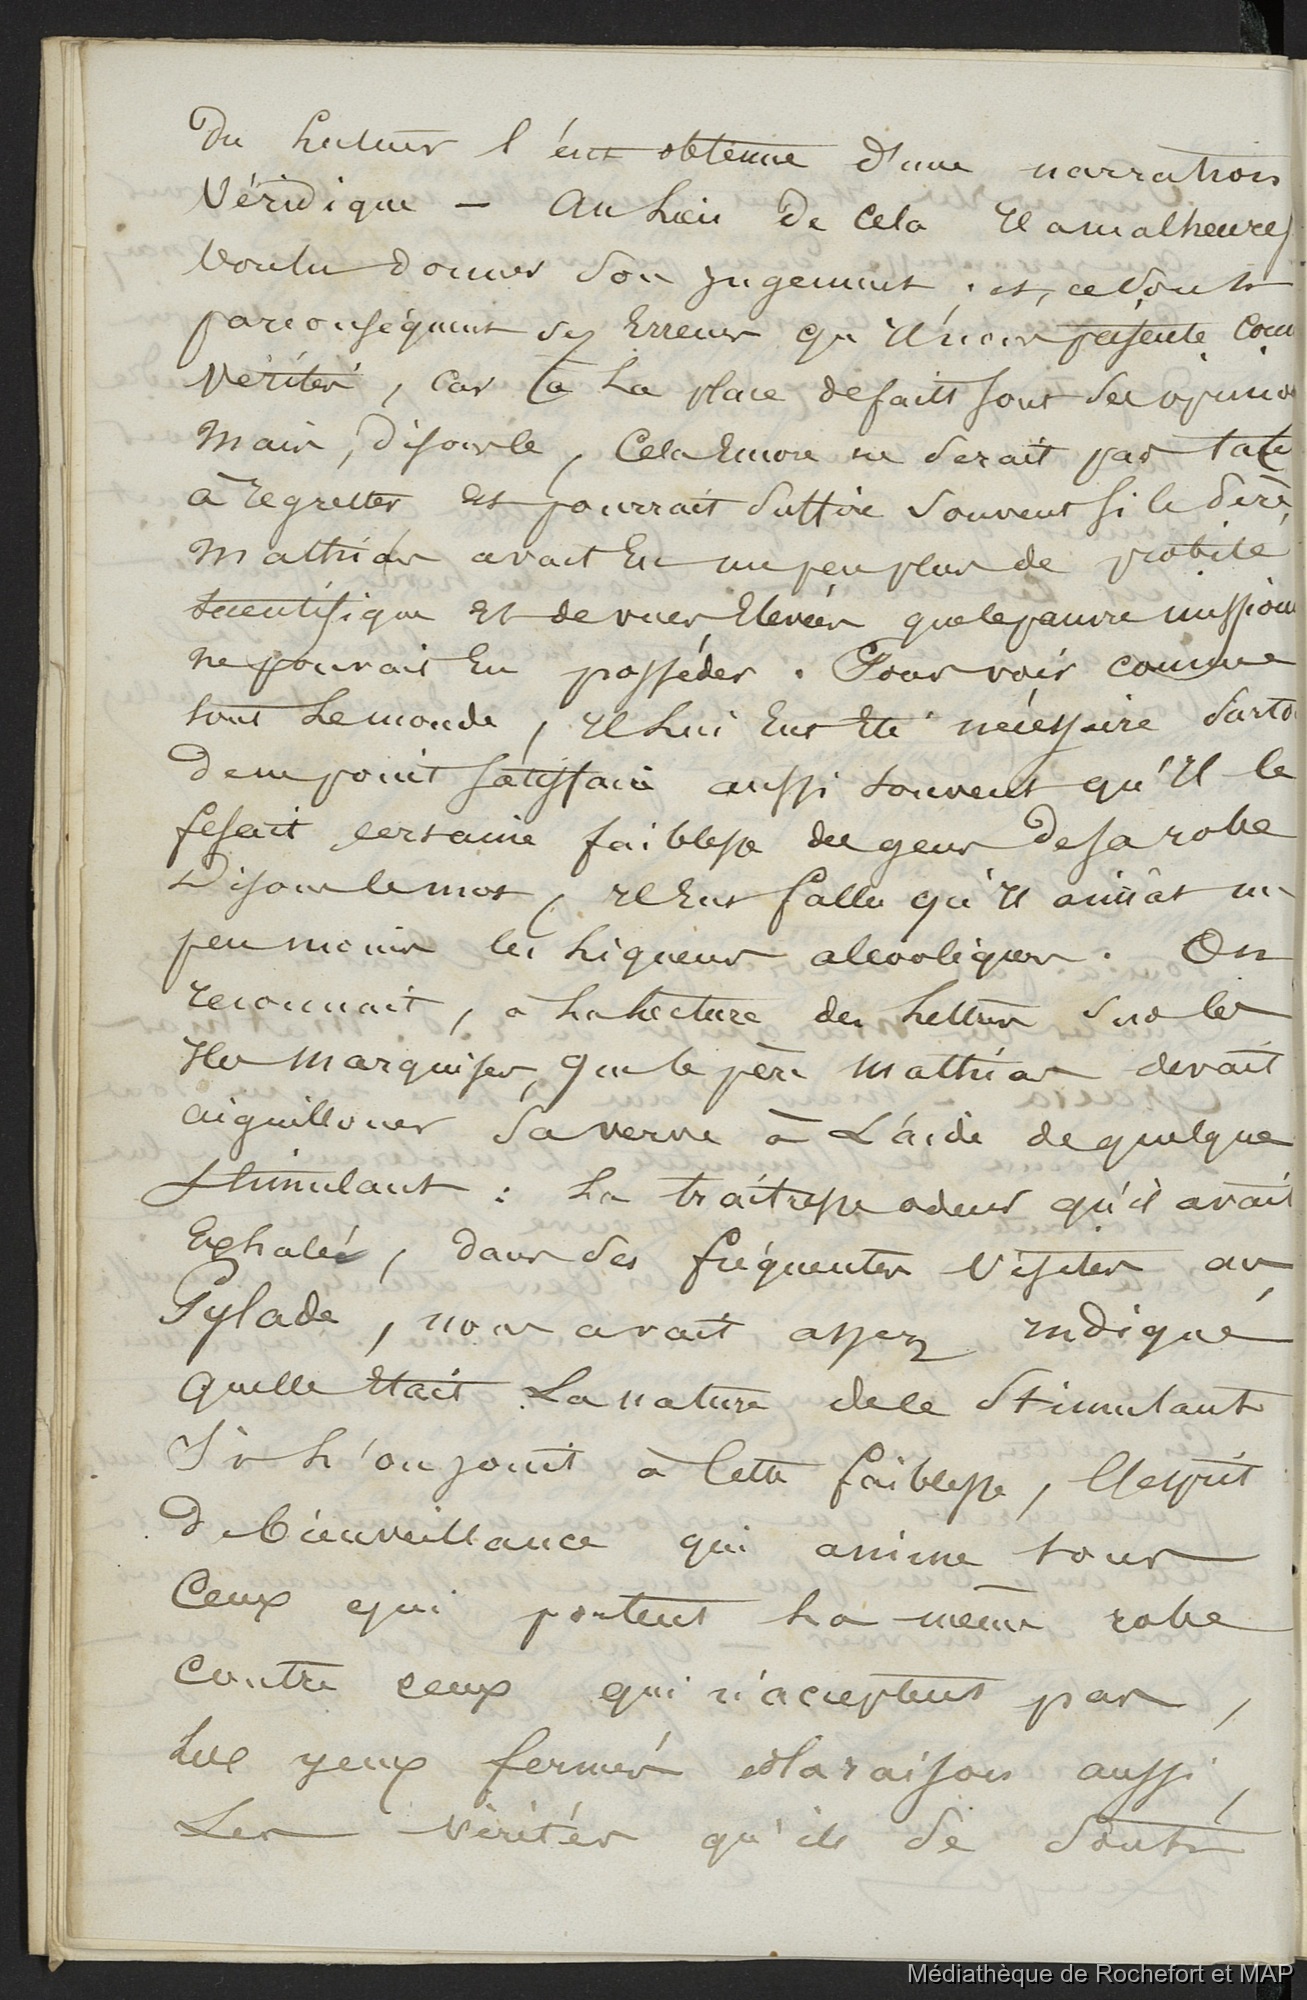 Du Lecteur l'éut obtenue d'une narration
Véridique — Au Lieu de Cela Il a malheureu
Voulu donner Son jugement ; et, ce Sont
parconséquent des Erreurs qu'Il nous présente com
Vérités, car à La place de faits sont des opinio
Mais, disons le, Cela Encore ne Serait pas tant
à regretter et pourrait Suffire Souvent Si le Père
Mathias avait Eu un peu plus de probité
Scientifique Et de vues Elevées que le pauvre mission
ne pouvait En posséder. Pour voir comme
tout Le monde, Il Lui Eut Eté nécessaire Surto
de ne point satisfaire aussi souvent qu'Il le
fesait certaine faiblesse des gens de sa robe
Disons le mot, Il Eut fallu qu'Il aimât un
peu moins les Liqueurs alcooliques. On
reconnait, à La Lecture des Lettres Sur les
Iles Marquises, que le père Mathias devait
aiguillonner Sa verve à L'aide de quelque
Stimulant : La traîtresse odeur qu'il avait
Exhalée, dans Ses fréquentes Visites au
Pylade, nous avait assez indiqué
quelle Etait La nature de ce Stimulant
Si L'on joint à Cette faiblesse, l'Esprit
de bienveillance qui anime tous
Ceux qui portent La même robe
contre ceux qui n'acceptent pas,
Les yeux fermés et la raison aussi,
Les Vérités qu'ils Se Sont
Médiathèque de Rochefort et MAP